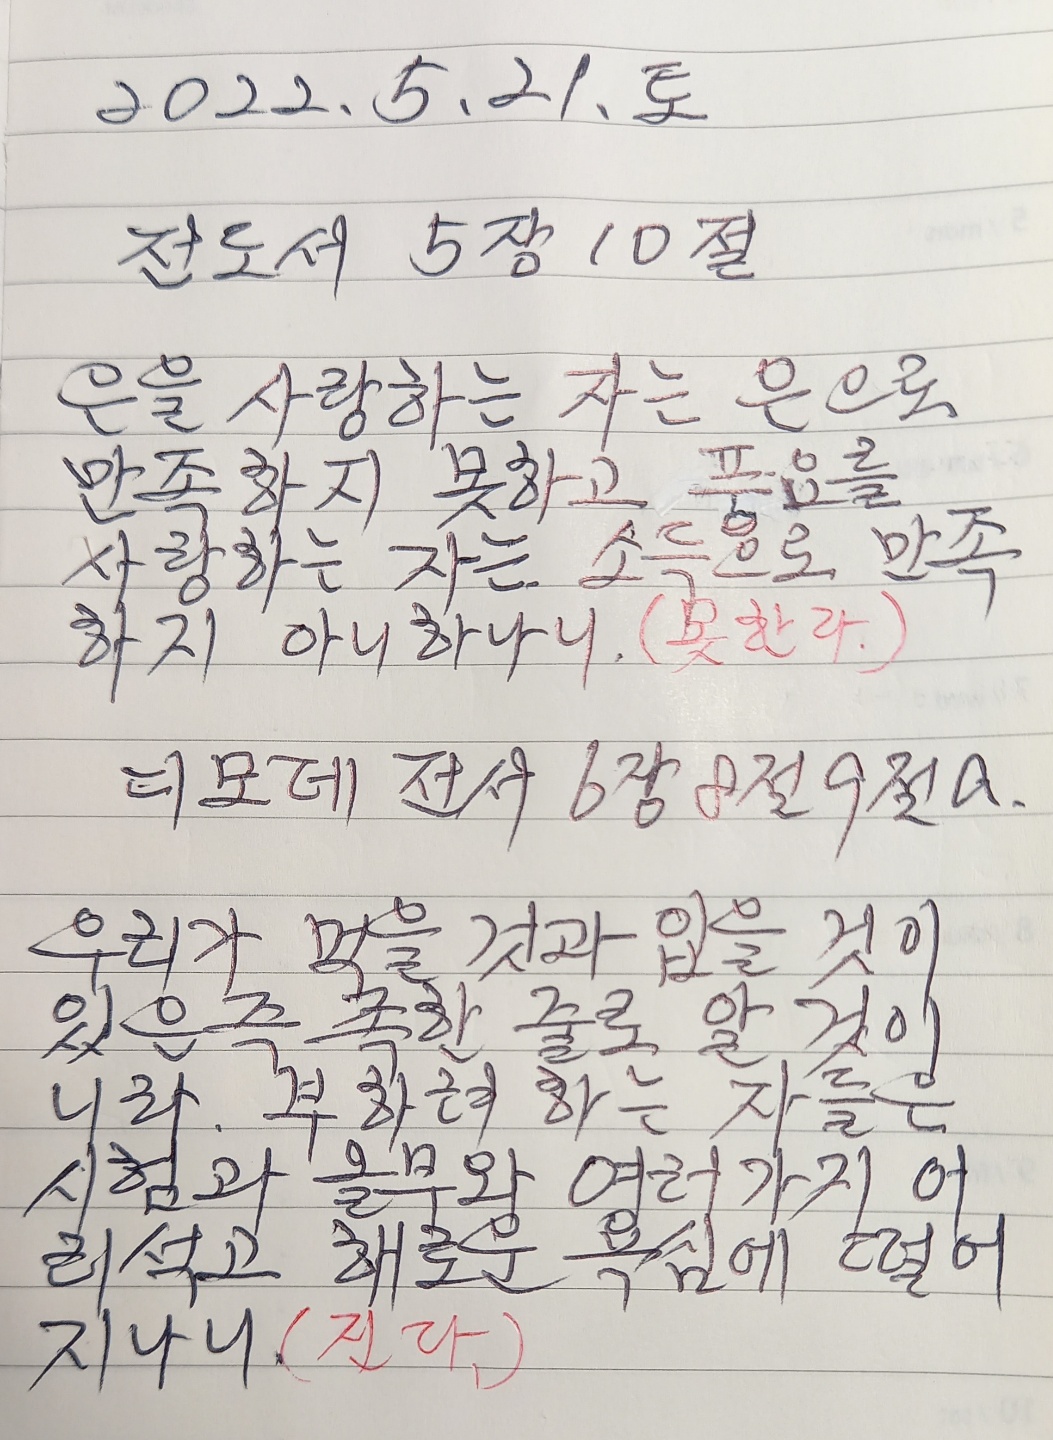 2022. 5. 21. 토
전도서 5장 10절
은을 사랑하는 자는 은으로
만족하지 못하고 풍요를
사랑하는 자는 소득으로 만족
하지 아니하나니. (못한다.)
디모데 전서 6장 8절 9절a.
우리가 먹을 것과 입을 것이
있은즉 족한 줄로 알 것이
니라. 부하려 하는 자들은
시험과 올무와 여러가지 어
리석고 해로운 욕심에 떨어
지나니. (진다.)